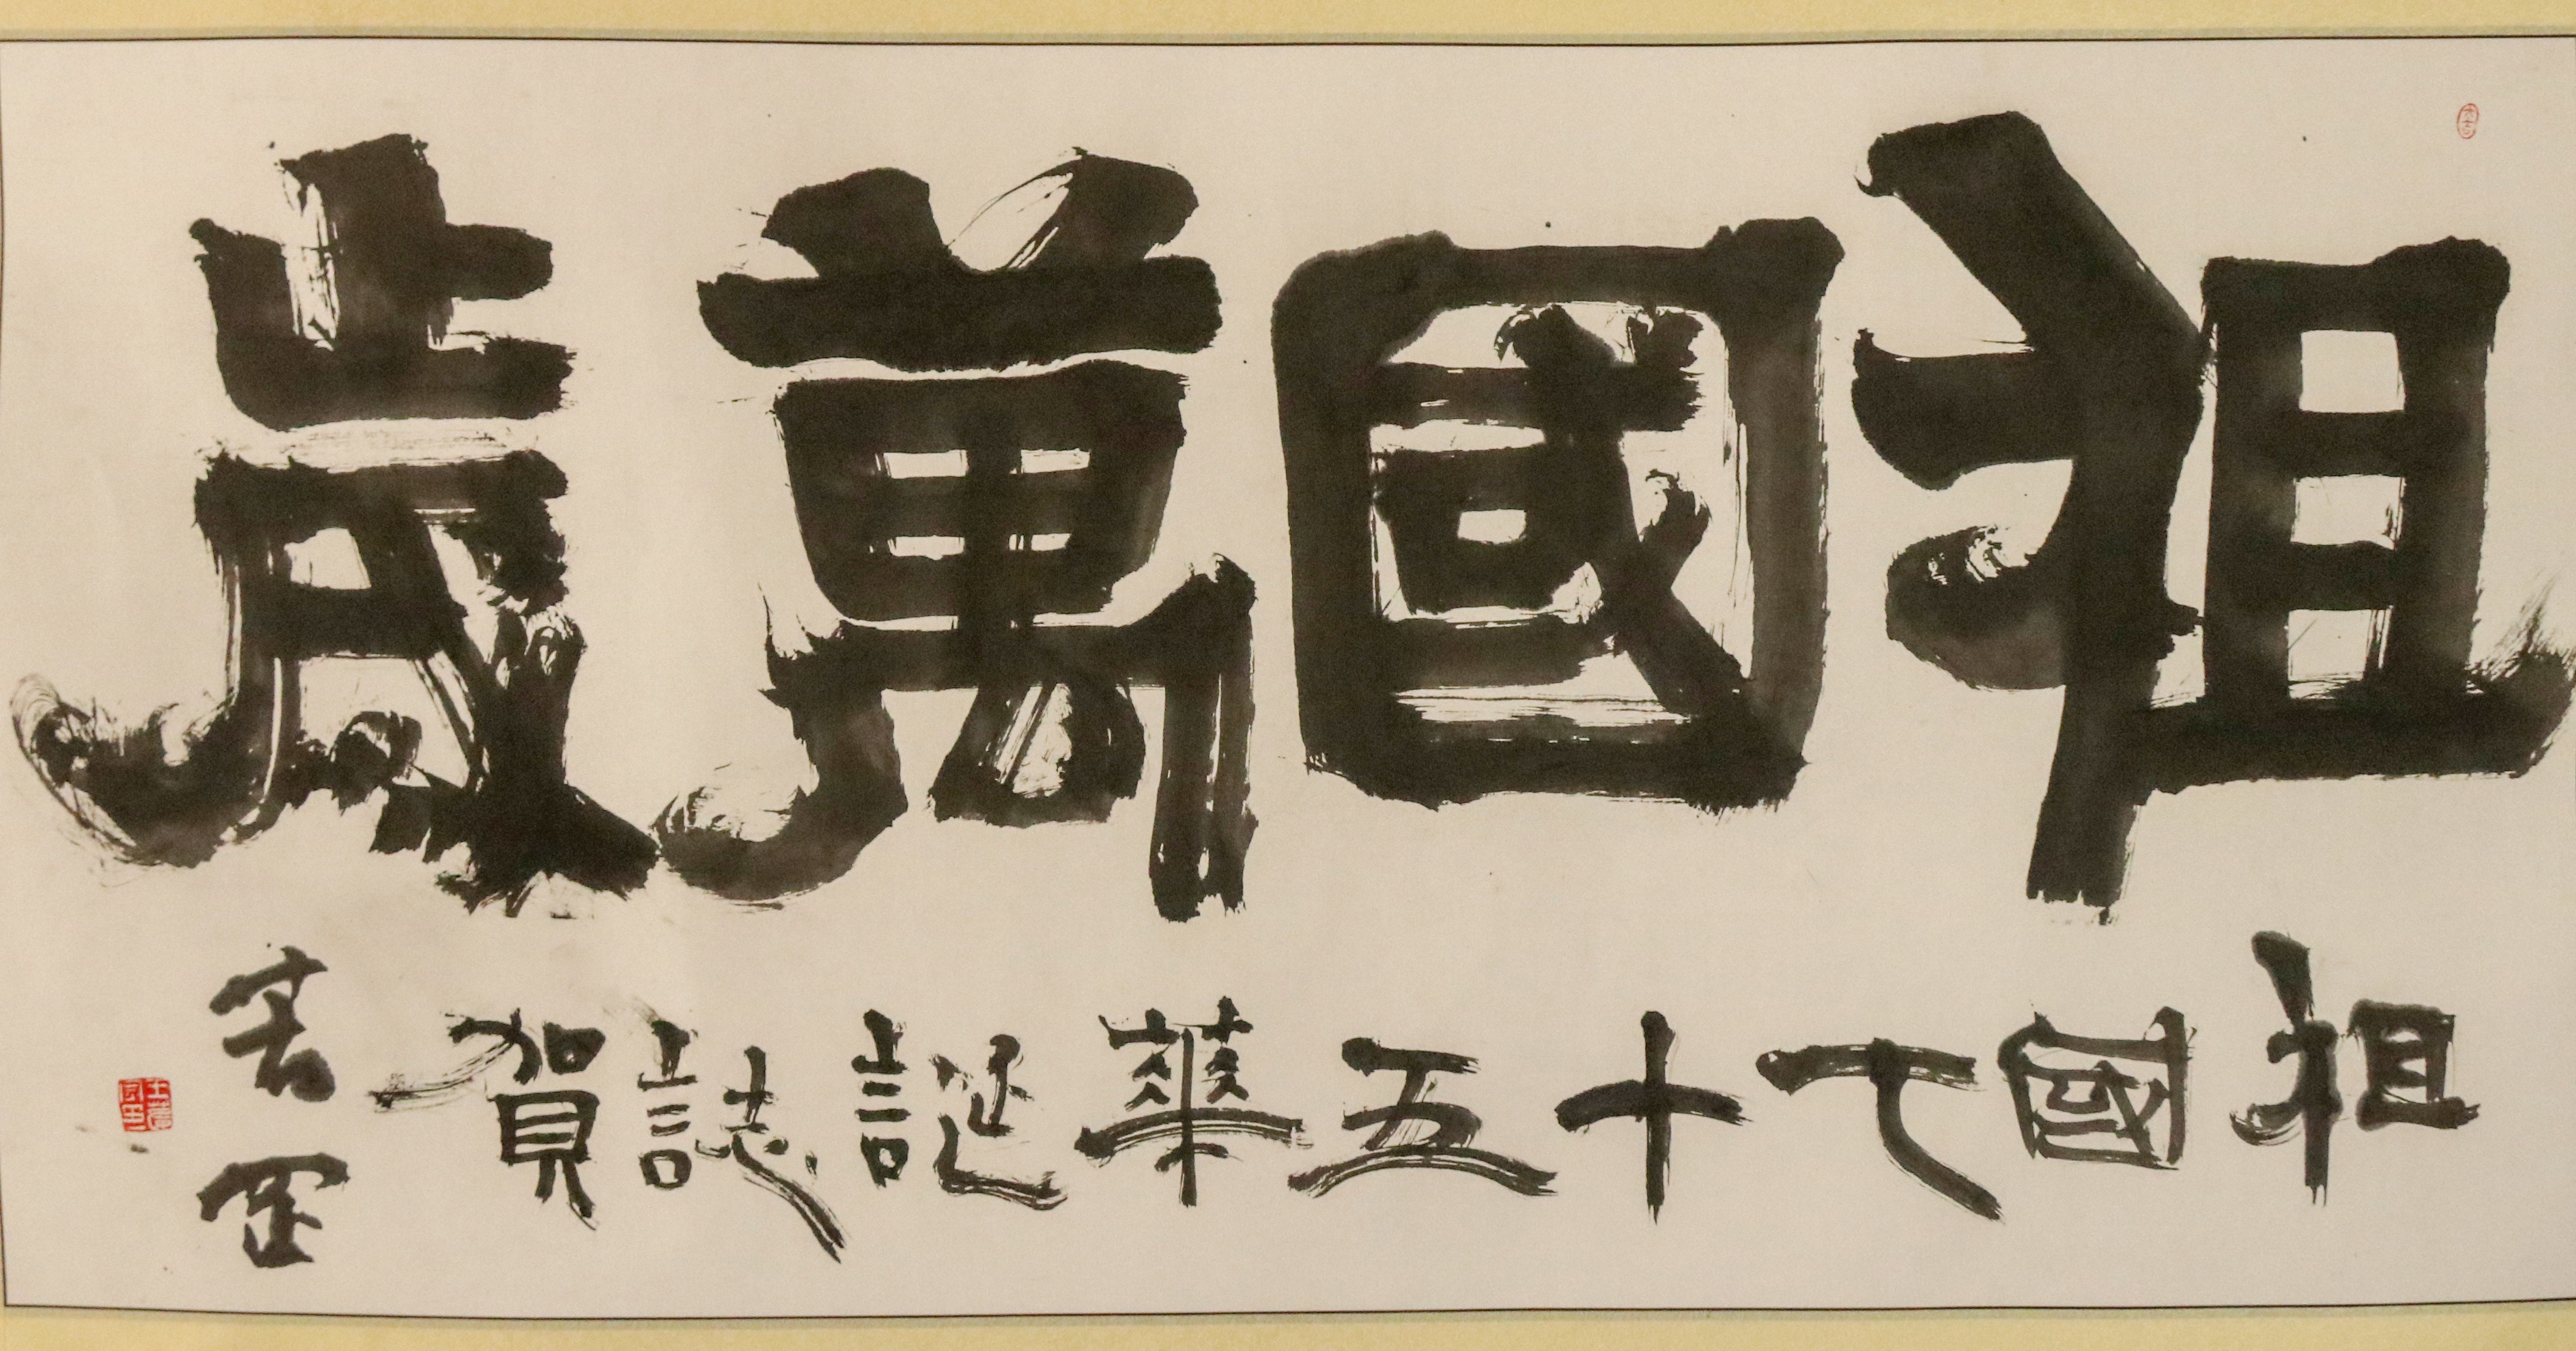 祖國萬歲
祖國七十五華誕誌賀